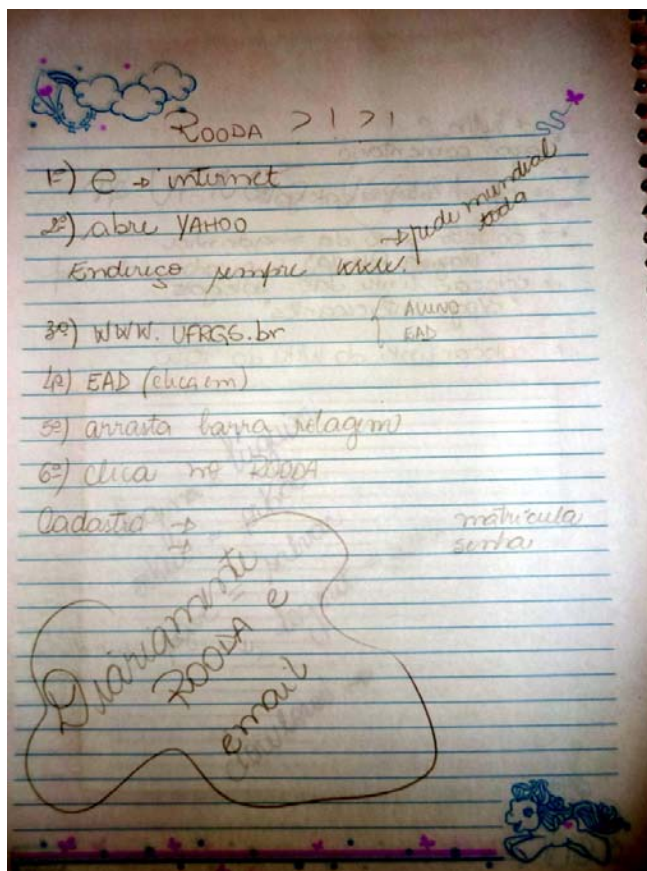 ROODA > ! > !
1º) e → internet
2º) abre YAHOO
Endereço sempre www.
→ rede mundial
toda
3º) WWW. UFRGS.br
ALUNO
EAD
4º) EAD (clica em)
5º) arrasta barra rolagem
6º) clica no ROODA
Cadastro →
matrícula
senha
Diáriamente
ROODA e
email